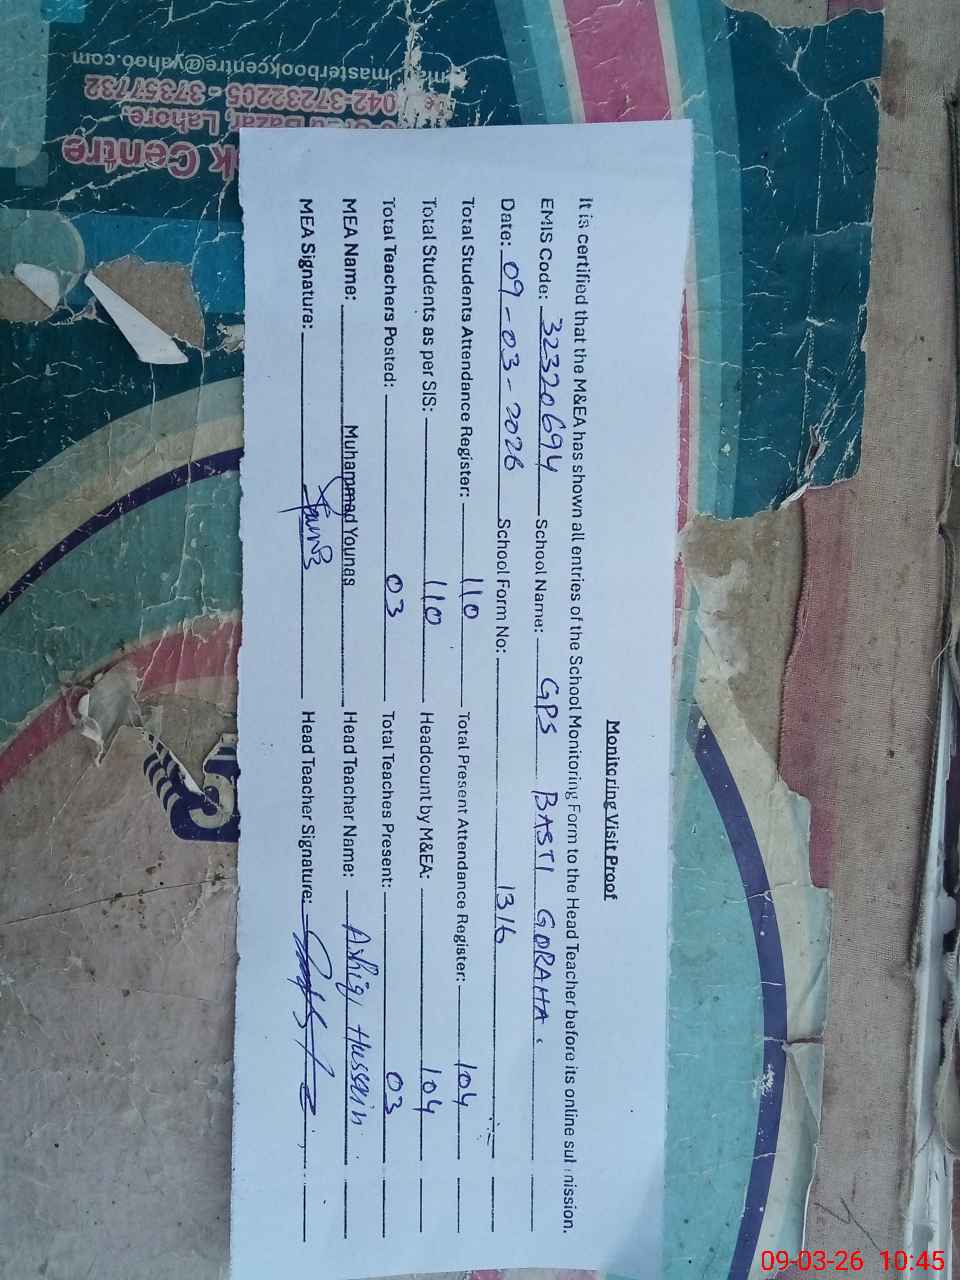 Monitoring Visit Proof
It is certified that the M&EA has shown all entries of the School Monitoring Form to the Head Teacher before its online submission.
EMIS Code: 32320694 School Name: GPS BASTI GORAHA.
Date: 09-03-2026 School Form No: 1316
Total Students Attendance Register: 110 Total Present Attendance Register: 104
Total Students as per SIS: 110 Headcount by M&EA: 104
Total Teachers Posted: 03 Total Teaches Present: 03
MEA Name: Muhammad Younas Head Teacher Name: Ashiq Hussain
MEA Signature: Head Teacher Signature:
k Centre
Bazar, Lahore.
042-37232205 - 37357732
masterbookcentre@yahoo.com
09-03-26 10:45